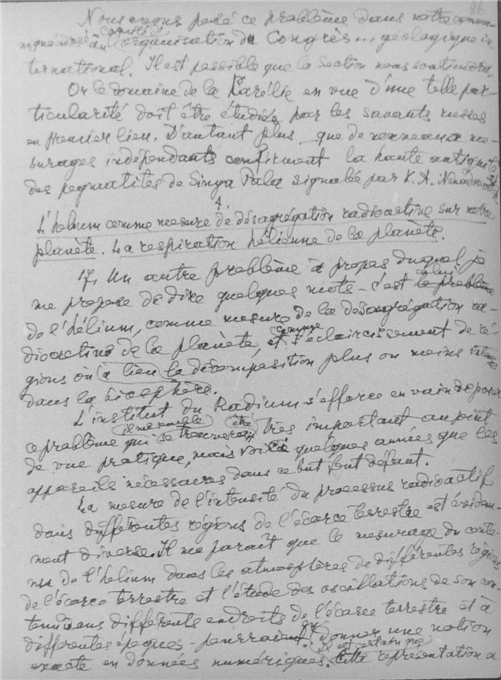 Nous avons posé ce problème dans notre commu-
niqué adressé à l'organisation du Congrès géologique in-
ternational. Il est possible que la section nous soutiendra.
Or le domaine de la Karélie en vue d'une telle par-
ticularité doit être étudiée par les savants russes
en premier lieu. D'autant plus que de nouveaux me-
surages indépendants confirment la haute antiquité
des pegmatites de Sinya Pala signalée par K. A. Nenadkevitch
L'hélium comme mesure de désagrégation radioactive sur notre
planète. La respiration hélienne de la planète.
17. Un autre problème à propos duquel je
me propose de dire quelques mots - c'est celui
de l'hélium, comme mesure de la désagrégation ra-
dioactive de la planète, et comme éclaircissement de ré-
gions où a lieu la décomposition plus ou moins
dans la biosphère.
L'institut du Radium s'efforce en vain de poser
ce problème qui me semble être très important au point
de vue pratique, mais voici quelques années que les
appareils nécessaires dans ce but font défaut.
La mesure de l'intensité du processus radioactif
dans différentes régions de l'écorce terrestre est évidem-
ment diverse. Il me paraît que le mesurage du conte-
nu de l'hélium dans les atmosphères de différentes régions
de l'écorce terrestre et l'étude des oscillations de son con-
tenu dans différents endroits de l'écorce terrestre et à
différentes époques, pourraient donner une notion
exacte en données numériques. Il est certain que cette représentation a